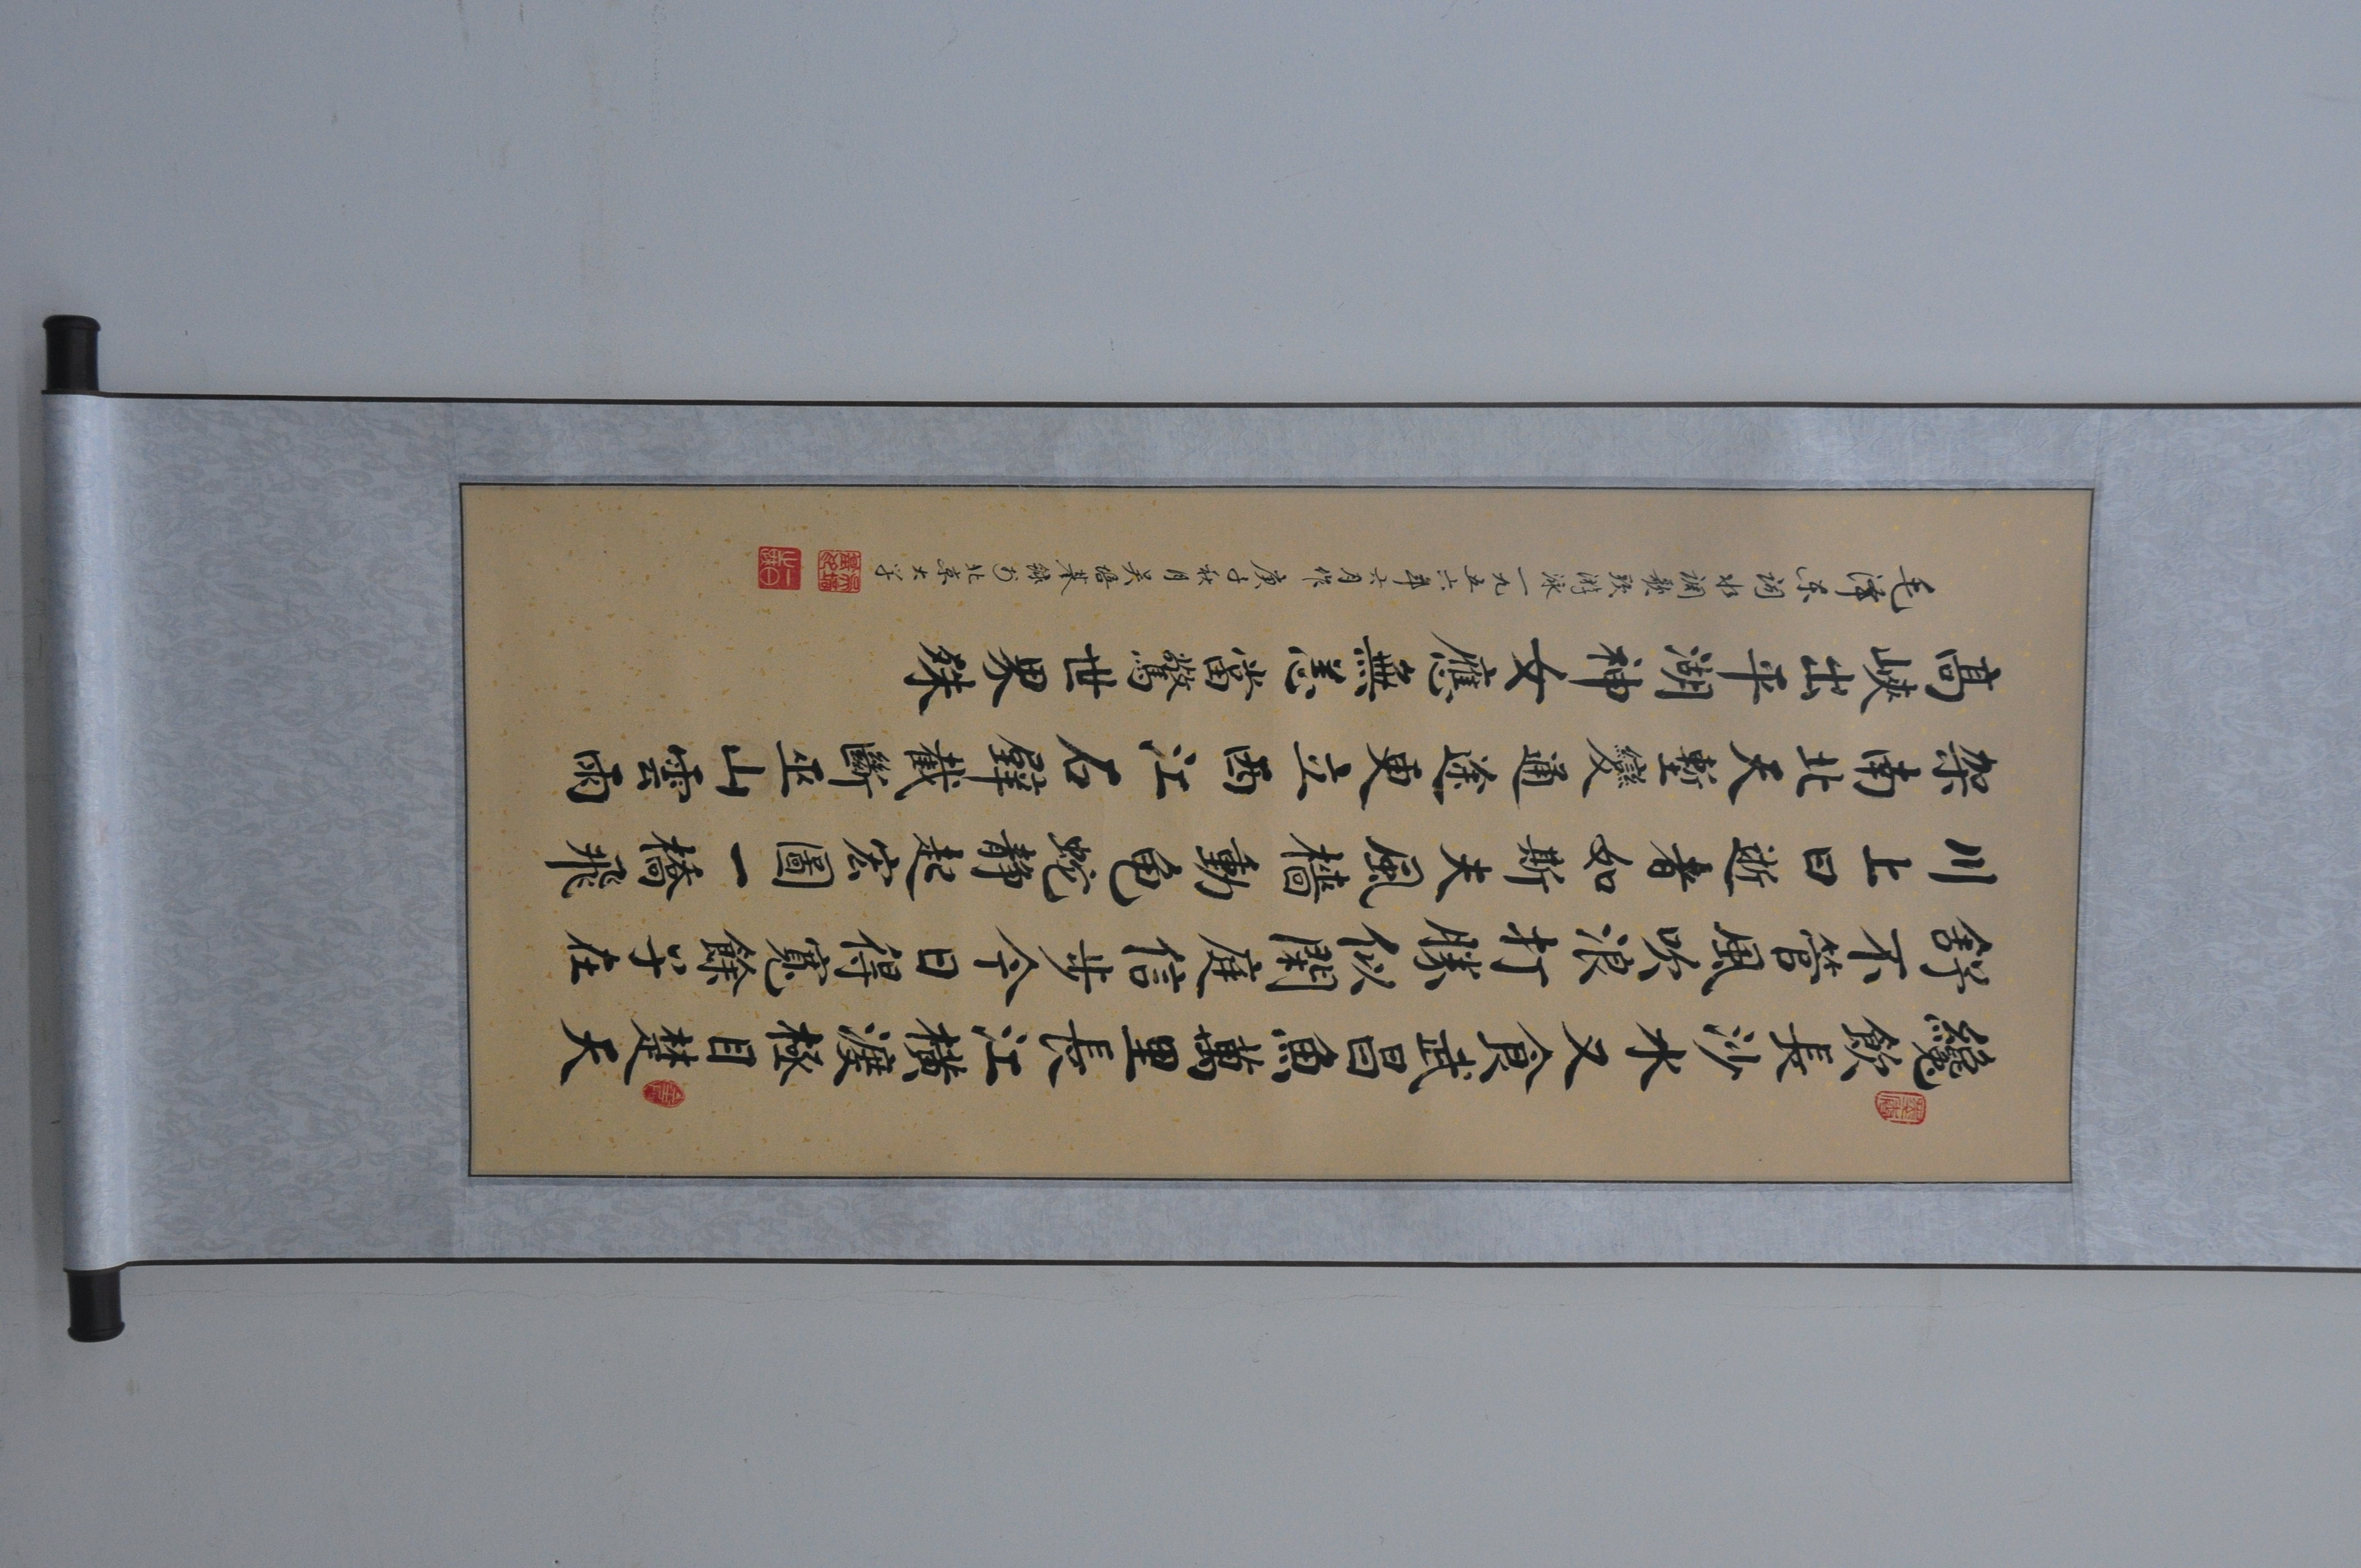 纔飲長沙水又食武昌魚萬里長江橫渡極目楚天
舒不管風吹浪打勝似閑庭信步今日得寬餘子在
川上曰逝者如斯夫風檣動龟蛇静起宏圖一橋飛
架南北天塹變通途更立西江石壁截斷巫山雲雨
高峽出平湖神女應無恙當驚世界殊
毛泽东词水调歌頭游泳一九五六年六月作 庚子秋月吴培基録於北京大学